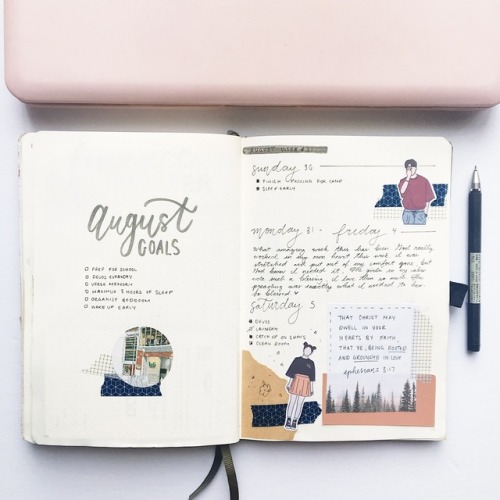 august
GOALS
PREP FOR SCHOOL
DEVOS EVERYDAY
VERSE MEMORY
MAXIMUM 8 HOURS OF SLEEP
ORGANIZE BEDROOM
WAKE UP EARLY
AUGUST WEEK
sunday 30
FINISH PACKING FOR CAMP
SLEEP EARLY
monday 31 - friday 4
What amazing week this has been. God really
worked in my own heart this week. it was
stretched and put out of my comfort zone, but
God knew i needed it. The girls in my cabin
were such a blessing. i love them so much. The
preaching was exactly what i needed to hear.
So blessed
saturday 5
DEVOS
LAUNDRY
CATCH UP ON
CLEAN ROOM
THAT CHRIST MAY
DWELL IN YOUR
HEARTS BY FAITH
THAT YE, BEING ROOTED
AND GROUNDED IN LOVE
ephesians 3:17